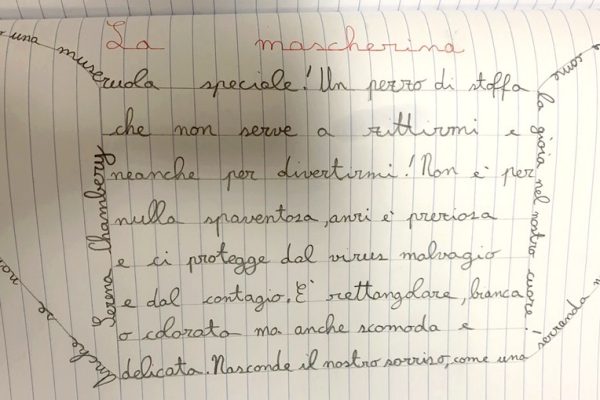 La mascherina
una museruola speciale! Un pezzo di stoffa
che non serve a zittirmi e
neanche per divertirmi! Non è per
nulla spaventosa, anzi è preziosa
e ci protegge dal virus malvagio
e dal contagio. È rettangolare, bianca
o colorata ma anche scomoda e
delicata. Nasconde il nostro sorriso, come una
serranda
Anche se
la gioia nel nostro cuore!
Serena Chambery